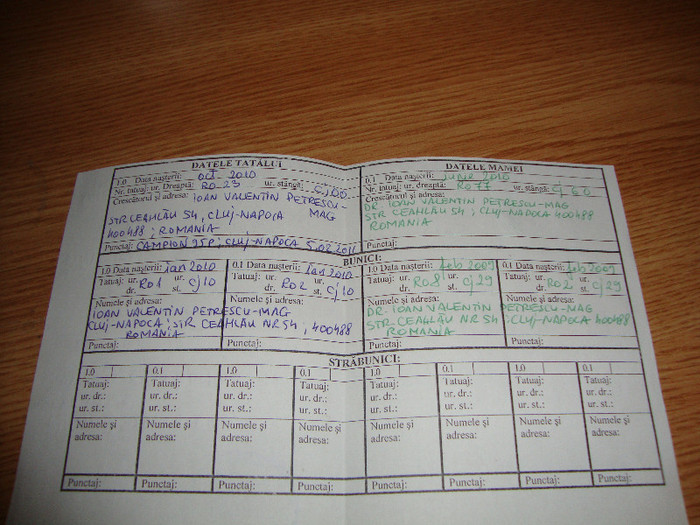 DATELE TATĂLUI
1.0 Data nașterii: oct 2010
Nr. tatuaj: ur. Dreaptă: RO 23 ur. stângă:
Crescătorul și adresa: IOAN VALENTIN PETRESCU-
STR CEAHLĂU 54, CLUJ-NAPOCA MAG
400488; ROMANIA
Punctaj: CAMPION 95P; CLUJ-NAPOCA 5.02.2011
DATELE MAMEI
0.1 Data nașterii: iunie 2010
Nr. tatuaj: ur. dreaptă: RO 77 ur. stângă:
Crescătorul și adresa:
DR IOAN VALENTIN PETRESCU-MAG
STR CEAHLĂU 54; CLUJ-NAPOCA 400488
ROMANIA
Punctaj:
BUNICI:
1.0 Data nașterii: ian 2010
Tatuaj: ur. dr. RO 1 ur. st. CJ 10
0.1 Data nașterii: ian 2010
Tatuaj: ur. dr. RO 2 ur. st. CJ 10
Numele și adresa: Numele și adresa:
IOAN VALENTIN PETRESCU-MAG
CLUJ-NAPOCA; STR CEAHLĂU NR 54, 400488
ROMANIA
Punctaj: Punctaj:
1.0 Data nașterii: feb 2009
Tatuaj: ur. dr. RO 8 ur. st. CJ 29
0.1 Data nașterii: feb 2009
Tatuaj: ur. dr. RO 2 ur. st. CJ 29
Numele și adresa: Numele și adresa:
DR. IOAN VALENTIN PETRESCU-MAG
STR CEAHLĂU NR 54; CLUJ-NAPOCA 400488
ROMANIA
Punctaj: Punctaj:
STRĂBUNICI:
1.0 0.1 1.0 0.1 1.0 0.1 1.0 0.1
Tatuaj: Tatuaj: Tatuaj: Tatuaj: Tatuaj: Tatuaj: Tatuaj: Tatuaj:
ur. dr.: ur. dr.: ur. dr.: ur. dr.: ur. dr.: ur. dr.: ur. dr.: ur. dr.:
ur. st.: ur. st.: ur. st.: ur. st.: ur. st.: ur. st.: ur. st.: ur. st.:
Numele și Numele și Numele și Numele și Numele și Numele și Numele și Numele și
adresa: adresa: adresa: adresa: adresa: adresa: adresa: adresa:
Punctaj: Punctaj: Punctaj: Punctaj: Punctaj: Punctaj: Punctaj: Punctaj: